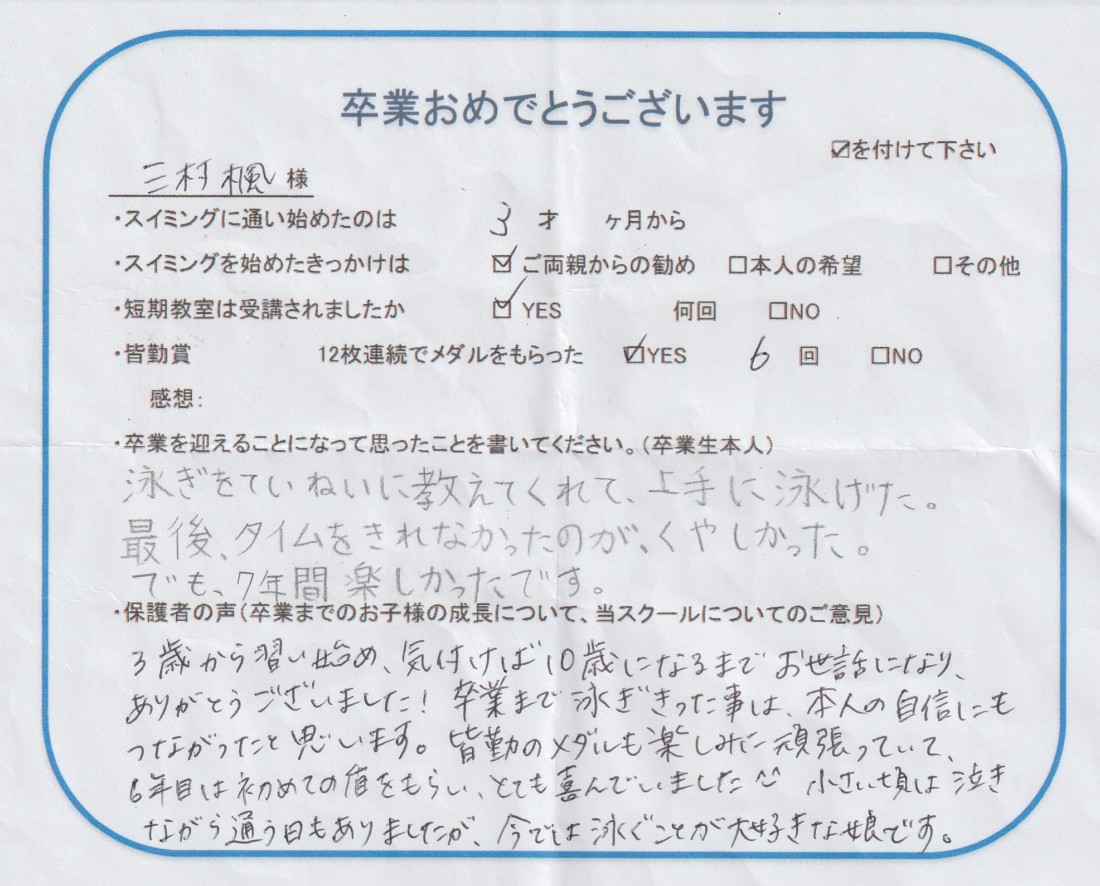 卒業おめでとうございます
☑を付けて下さい
三村楓 様
・スイミングに通い始めたのは 3 才 ヶ月から
・スイミングを始めたきっかけは ☑ご両親からの勧め □本人の希望 □その他
・短期教室は受講されましたか ☑YES 何回 □NO
・皆勤賞 12枚連続でメダルをもらった ☑YES 6 回 □NO
感想:
・卒業を迎えることになって思ったことを書いてください。(卒業生本人)
泳ぎをていねいに教えてくれて、上手に泳げた。
最後、タイムをきれなかったのが、くやしかった。
でも、7年間楽しかったです。
・保護者の声(卒業までのお子様の成長について、当スクールについてのご意見)
3歳から習い始め、気付けば10歳になるまでお世話になり、
ありがとうございました! 卒業まで泳ぎきった事は、本人の自信にも
つながったと思います。皆勤のメダルも楽しみに頑張っていて、
6年目は初めての盾をもらい、とても喜んでいました 小さい頃は泣き
ながら通う日もありましたが、今では泳ぐことが大好きな娘です。